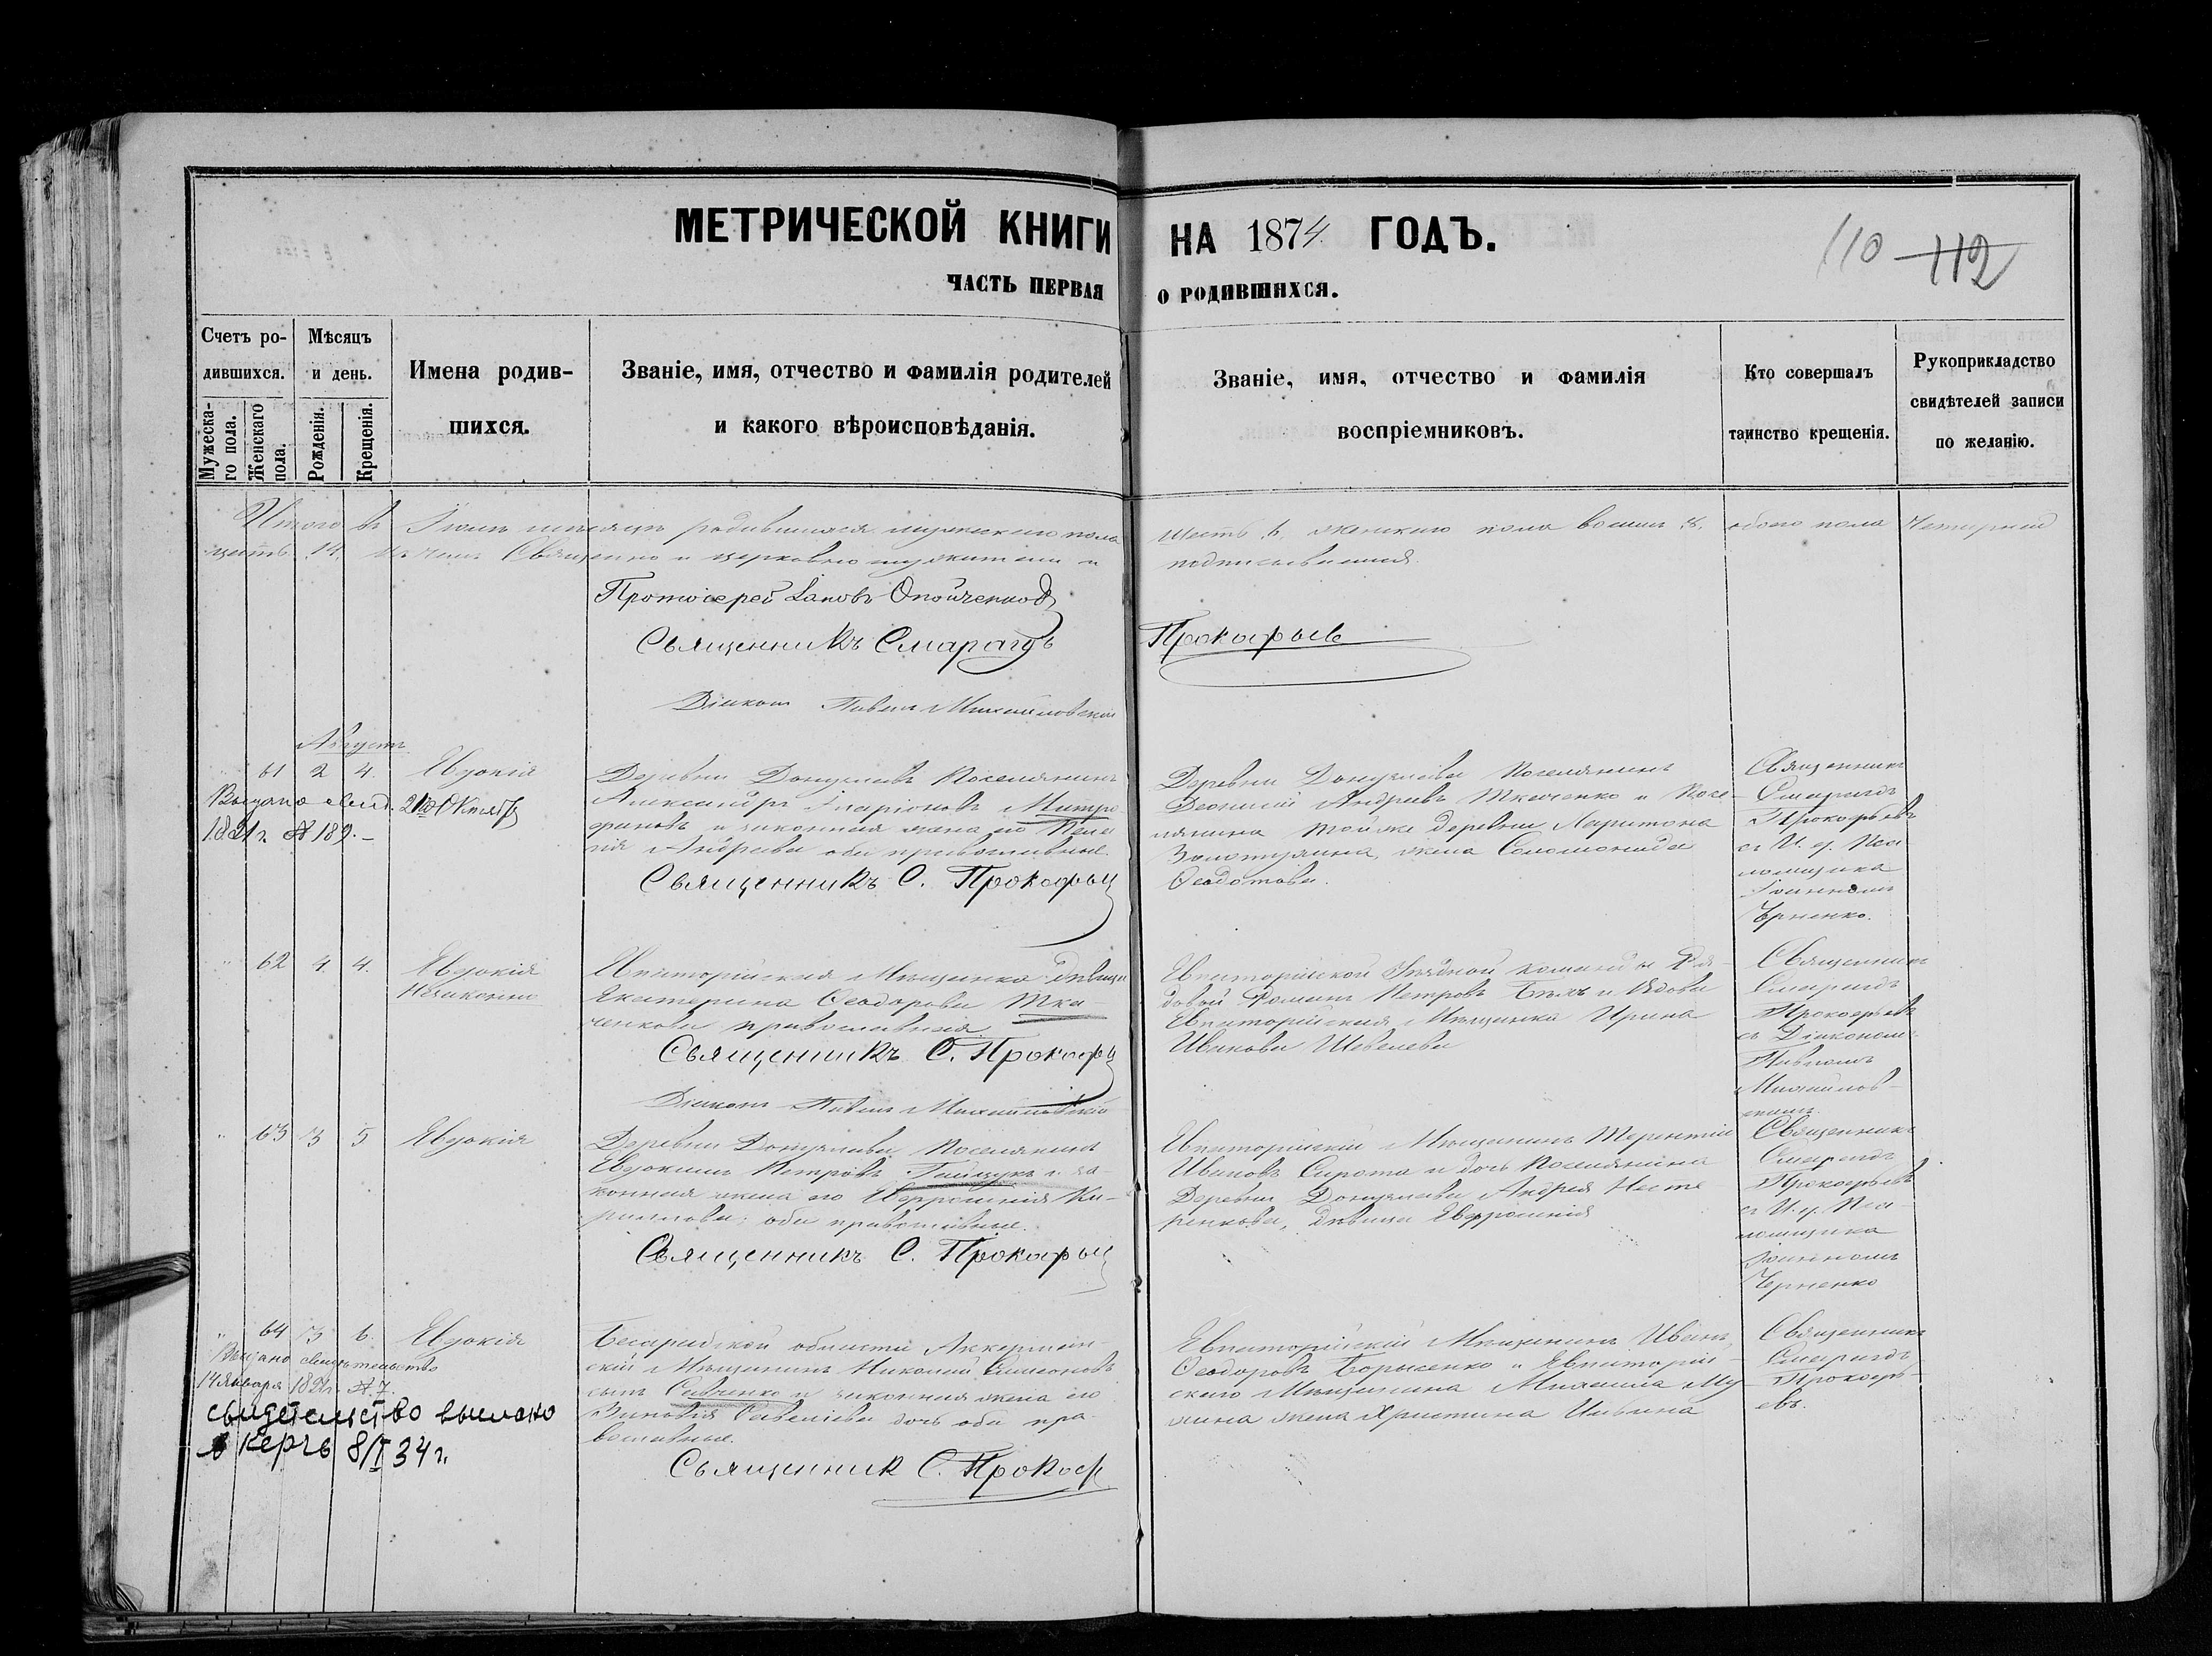 МЕТРИЧЕСКОЙ КНИГИ НА 1874 ГОДЪ.
110 112
ЧАСТЬ ПЕРВАЯ О РОДИВШИХСЯ.
Счетъ родившихся.
Мужеска-
го пола.
Женскаго
пола.
Мѣсяцъ
и день.
Рожденія.
Крещенія.
Имена родив-
шихся.
Званіе, имя, отчество и фамилія родителей
и какого вѣроисповѣданія.
Званіе, имя, отчество и фамилія
воспріемниковъ.
Кто совершалъ
таинство крещенія.
Рукоприкладство
свидѣтелей записи
по желанію.
Итого въ мѣсяцѣ родившихся мужескаго пола шесть 6. женскаго пола восемь 8. обоего пола четырнад
цать 14. Священно и церковно служители и подписываемся.
Протоіерей Іаковъ
Священникъ Смарагдъ Прокофьевъ
Діаконъ Павелъ Михайловскій
Августъ
61 2 4. Евдокія
Выдано свид. Октября
№ 189.
Деревни Донузлавъ Поселянинъ
Александръ Иларіоновъ Митро
фановъ и законная жена его Пела
гія Андреева оба православные.
Священникъ С. Прокофьев
Деревни Донузлава Поселянинъ
Андреевъ Ткаченко и Посе-
лянина той же деревни Харитона
жена Соломонида
Ѳеодотова.
Священникъ
Смарагдъ
Прокофьевъ
съ И. д. Пса
ломщика
Іоанномъ
Черненко.
62 4. 4. Евдокія
Незаконно
Евпаторійская Мѣщанка дѣвица
Екатерина Ѳеодорова Тка-
ченкова православная
Священникъ С. Прокофьев
Діаконъ Павелъ Михайловскій
Евпаторійской Уѣздной команды Ря-
довой Романъ Петровъ и Вдова
Евпаторійская Мѣщанка Ирина
Иванова Шевелева
Священникъ
Смарагдъ
Прокофьевъ
съ Діакономъ
Павломъ
Михайлов-
скимъ.
63 3 5 Евдокія
Деревни Донузлава Поселянинъ
Евдокимъ Петровъ и за-
конная жена его Евфросинія Ки-
риллова; оба православные.
Священникъ С. Прокофьев
Евпаторійскій Мѣщанинъ Терентій
Ивановъ Сирота и дочь Поселянина
Деревни Донузлава Андрея Несте
ренкова, дѣвица Евфросинія
Священникъ
Смарагдъ
Прокофьевъ
съ И. д. Пса-
ломщика
Іоанномъ
Черненко
64 3 6. Евдокія
Выдано свидѣтельство
14 Января № 7.
свидетельство выслано
в Керчь 8/I 34 г.
Бесарабской области Аккерман-
скій Мѣщанинъ Николай Симеоновъ
сынъ Савченко и законная жена его
Зиновія Савельева дочь оба пра-
вославные.
Священник С. Прокоф
Евпаторійскій Мѣщанинъ Иванъ
Ѳеодоровъ Борисенко и Евпаторій-
скаго Мѣщанина Михаила
жена Христина Ильина
Священникъ
Смарагдъ
Прокофь-
евъ.